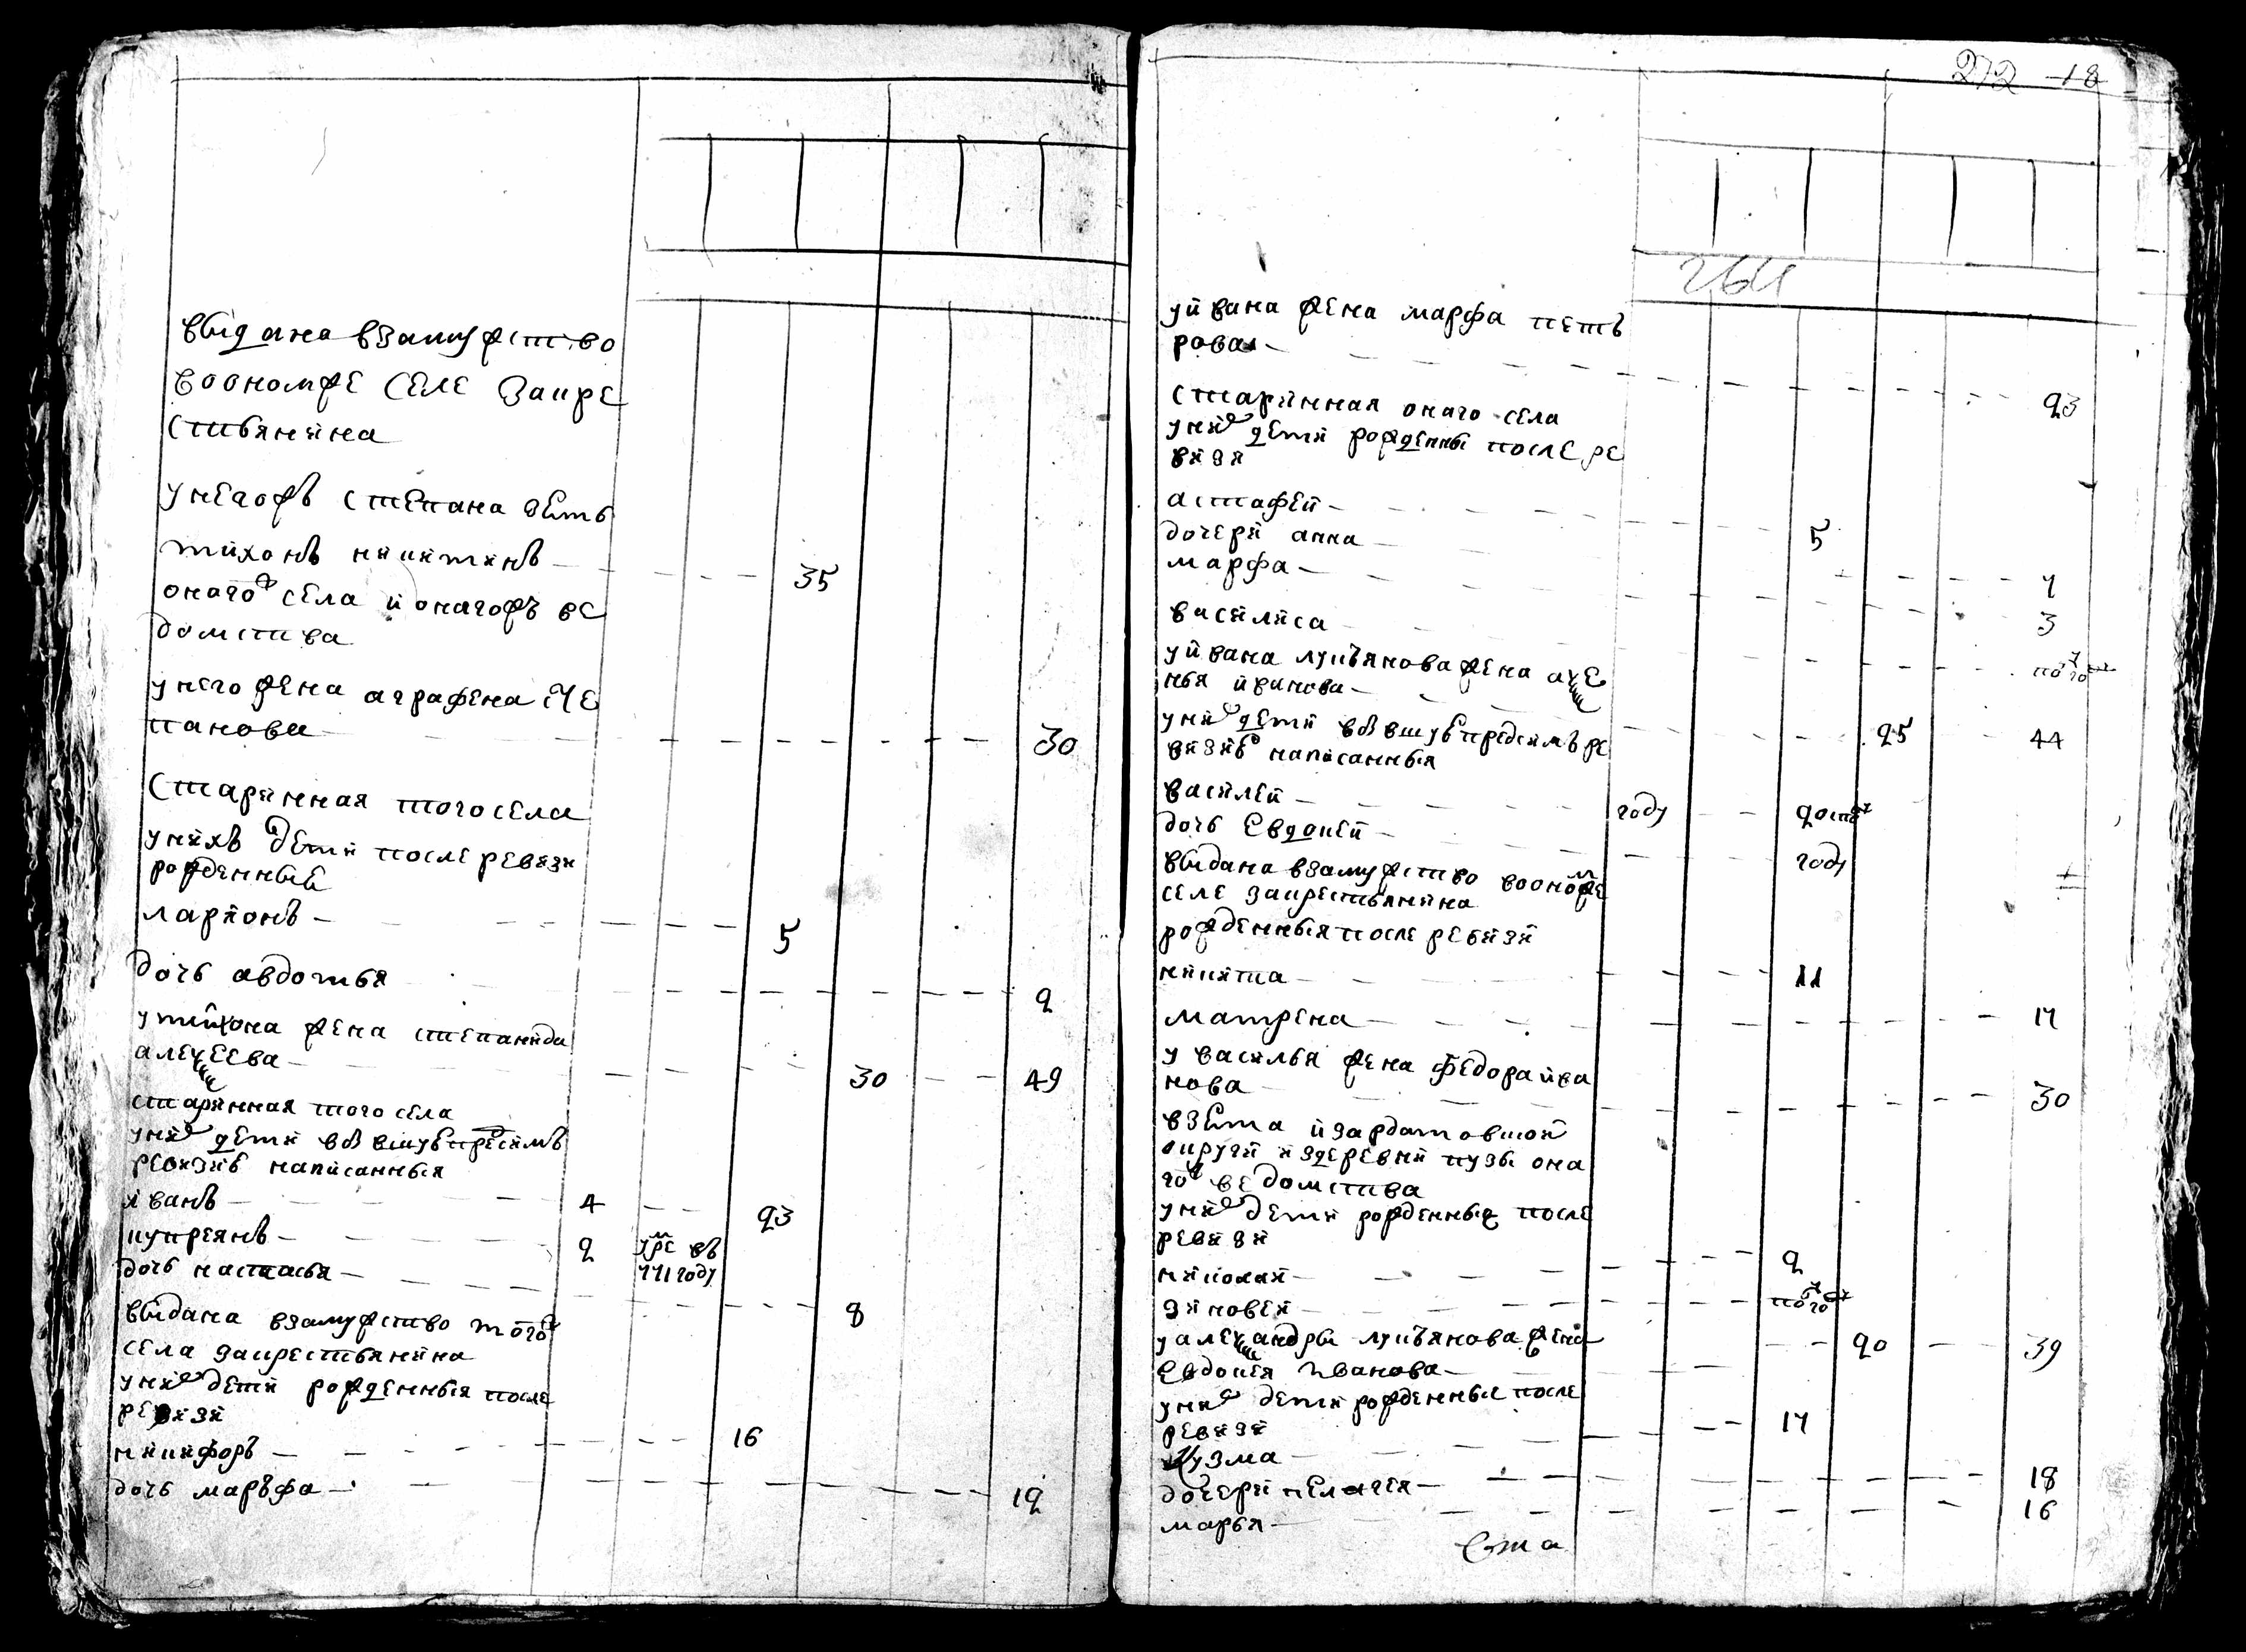 выдана взамужство
воономже селе закре
стьянина
унегожъ степана зеть
тихонъ никитинъ 35
оного села ионагожъ ве
домства
унего жена аграфена сте
панова 30
старинная тогосела
унихъ дети послеревизи
рожденный
ларионъ 5
дочь авдотья 2
утихона жена степанида
алексеева 30 49
старинная того села
уних дети въ вшуъ предсимъ
ревизиъ написанныя
иванъ 4 23
купреянъ 2 уме въ
771 году
дочь настасья 8
выдана взамужство того
села закрестьянина
уних дети рожденныя после
ревизи
никифоръ 16
дочь маръфа 12
272 18
264
уивана жена марфа петъ
рова 23
старинная онаго села
уних дети рожденны после ре
визи
астафей 5
дочери анна 7
марфа 3
василиса полгоду
уивана лукъянова жена аксе
нья иванова 25 44
уних дети въ вшуъ предсимъ ре
визиъ написанныя
василей году 20
дочь Евдокей году
выдана взамужство воономже
селе закрестьянина
рожденныя после ревизи
никита 11
матрена 17
у василья жена федора ива
нова 30
взета изардатовской
округи издеревни пузы она
го ведомства
уних дети рожденныя после
ревизи
николай 2
зиновей полгоду
уалександры лукъянова жена
Евдокея Иванова 20 39
уних дети рожденные после
ревизи
кузма 17
дочери пелагея 18
марья 16